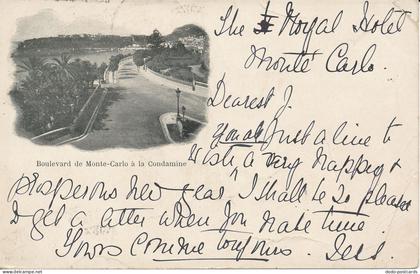 The Royal Hotel
Monte Carlo.
Dearest J.
Just a line to
wish a very happy &
Boulevard de Monte-Carlo à la Condamine
prosperous new year, I shall be so pleased
to get a letter when you have time.
Yours comme toujours.